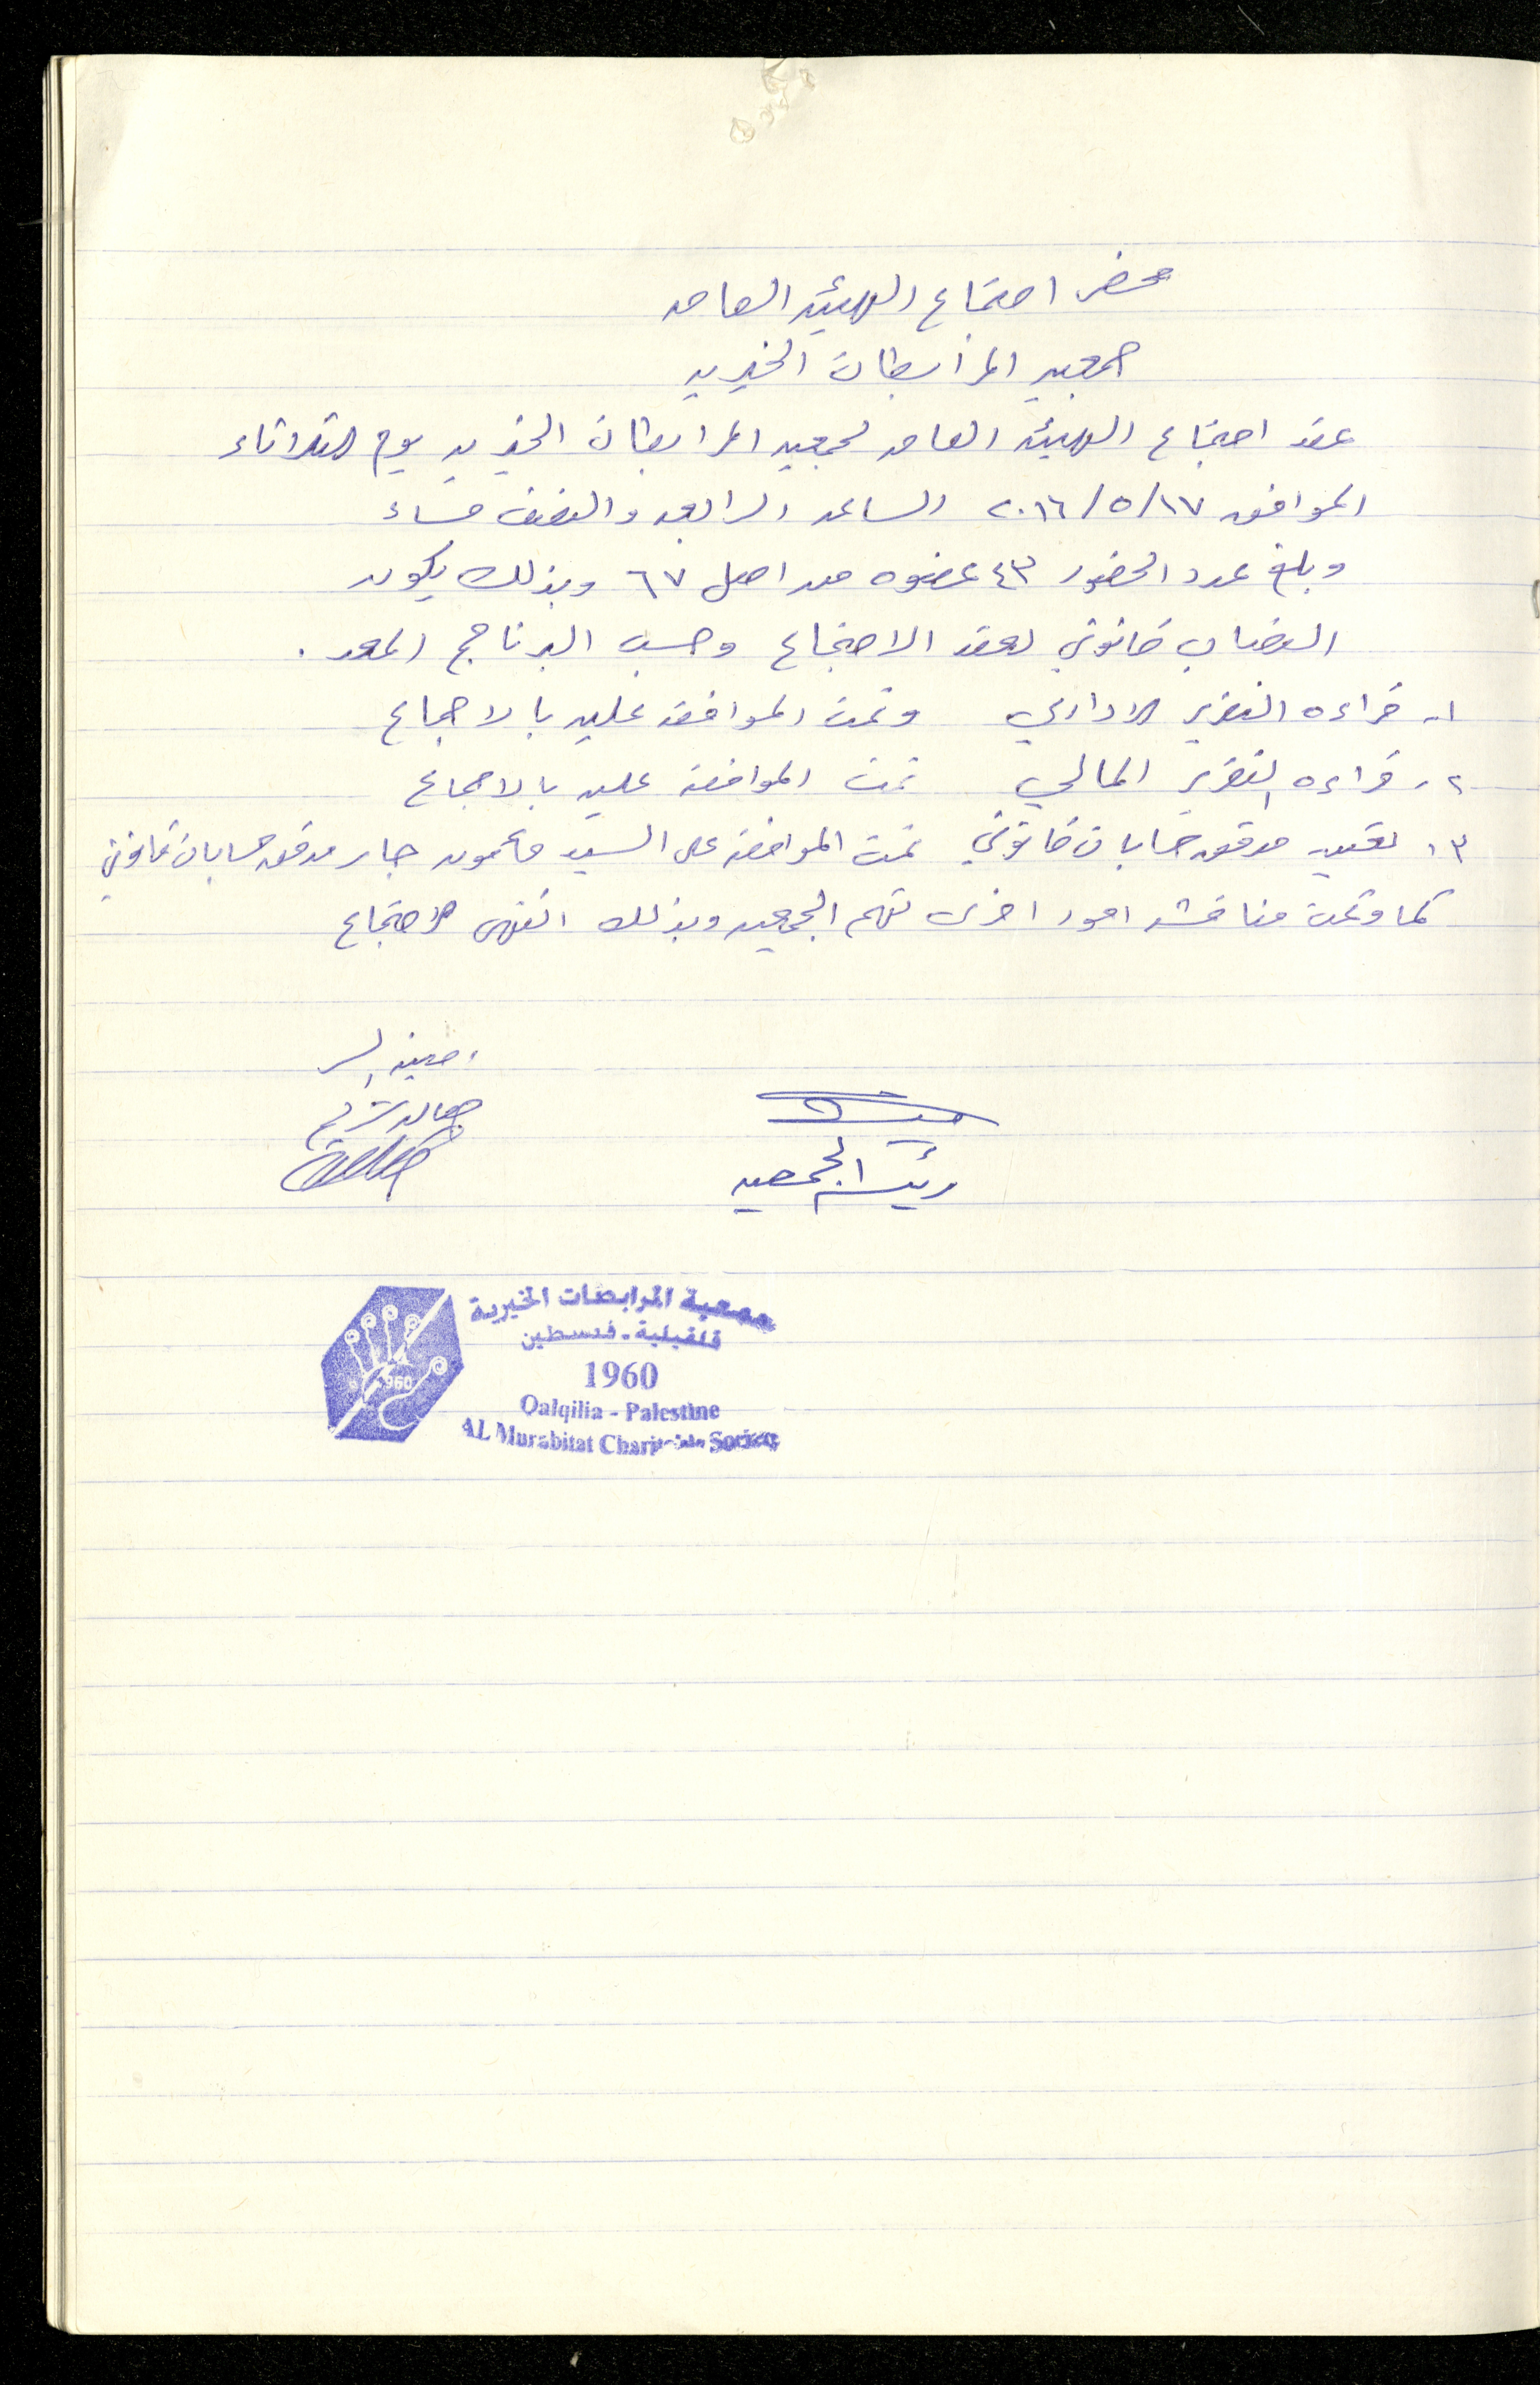 محضر اجتماع الهيئه العامه
جمعيه المرابطات الخيريه
عقد اجتماع الهيئه العامه لجمعيه المرابطات الخيريه يوم الثلاثاء
الموافق ١٧/٥/٢٠١٦ الساعه الرابعه والنصف مساء
وبلغ عدد الحضور ٤٣ عضوه من اصل ٦٧ وبذلك يكون
النصاب قانوني لعقد الاجتماع وحسب البرنامج المعد .
١- قراءه التقرير الاداري وتمت الموافقه عليه بالاجماع
٢- قراءه التقرير المالي تمت الموافقه عليه بالاجماع
٣- تعيين مدقق حسابات قانوني تمت الموافقه على السيد مأمون جابر مدقق حسابات قانوني
كما وتمت مناقشه امور اخرى تهم الجمعيه وبذلك انتهى الاجتماع
امينه السر
رئيسه الجمعيه
جمعية المرابطات الخيرية
قلقيلية - فلسطين
1960
Qalqilia - Palestine
AL Murabitat Charitable Society
1960